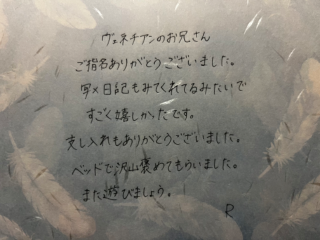 ヴェネチアンのお兄さん
ご指名ありがとうございました。
写メ日記もみてくれてるみたいで
すごく嬉しかったです。
差し入れもありがとうございました。
ベッドで沢山褒めてもらいました。
また遊びましょう。
R